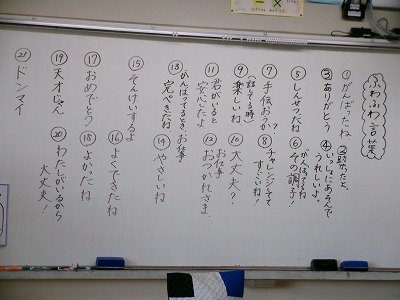 ふわふわ言葉
①がんばったね
②助かったよ
③ありがとう
④いっしょにあそんで
うれしいよ。
⑤しんせつだね
⑥がんばってるね
その調子!
⑦手伝おうか?
⑧チャレンジしてて
すごいね!
⑨(話をする時)
楽しいね
⑩大丈夫?
⑪君がいると
安心だよ
⑫お仕事
おつかれさま。
⑬がんばってるね お仕事
完ぺきだね
⑭やさしいね
⑮そんけいするよ
⑯よくできたね
⑰おめでとう
⑱よかったね
⑲天才じゃん
⑳わたしがいるから
大丈夫!
㉑ドンマイ